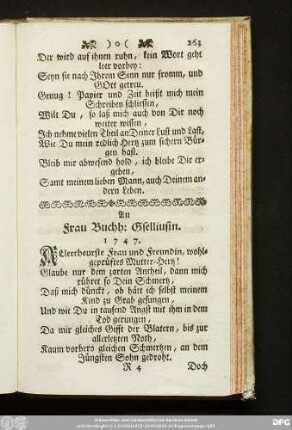 )o( 263
Der wird auf ihnen ruhn, kein Wort geht
leer vorbey:
Seyn sie nach Ihrem Sinn nur fromm, und
GOtt getreu.
Genug! Papier und Zeit heißt mich mein
Schreiben schliessen,
Wilt Du, so laß mich auch von Dir noch
weiter wissen,
Ich nehme vielen Theil an Deiner Lust und Last,
Wie Du mein redlich Hertz zum sichern Bür-
gen hast.
Bleib mir abwesend hold, ich bleibe Dir er-
geben,
Samt meinem lieben Mann, auch Deinem an-
dern Leben.
An
Frau Buchh: Gselliusin.
1747.
Allertheurste Frau und Freundin, wohl-
geprüftes Mutter-Hertz!
Glaube nur dem zarten Antheil, dann mich
rühret so Dein Schmertz,
Daß mich dünckt, ob hätt ich selbst meinem
Kind zu Grab gesungen,
Und wie Du in tausend Angst mit ihm in dem
Tod gerungen,
Da mir gleiches Gifft der Blatern, bis zur
allerletzten Noth,
Kaum vorhero gleichen Schmertzen, an dem
Jüngsten Sohn gedroht.
R 4 Doch
DFG